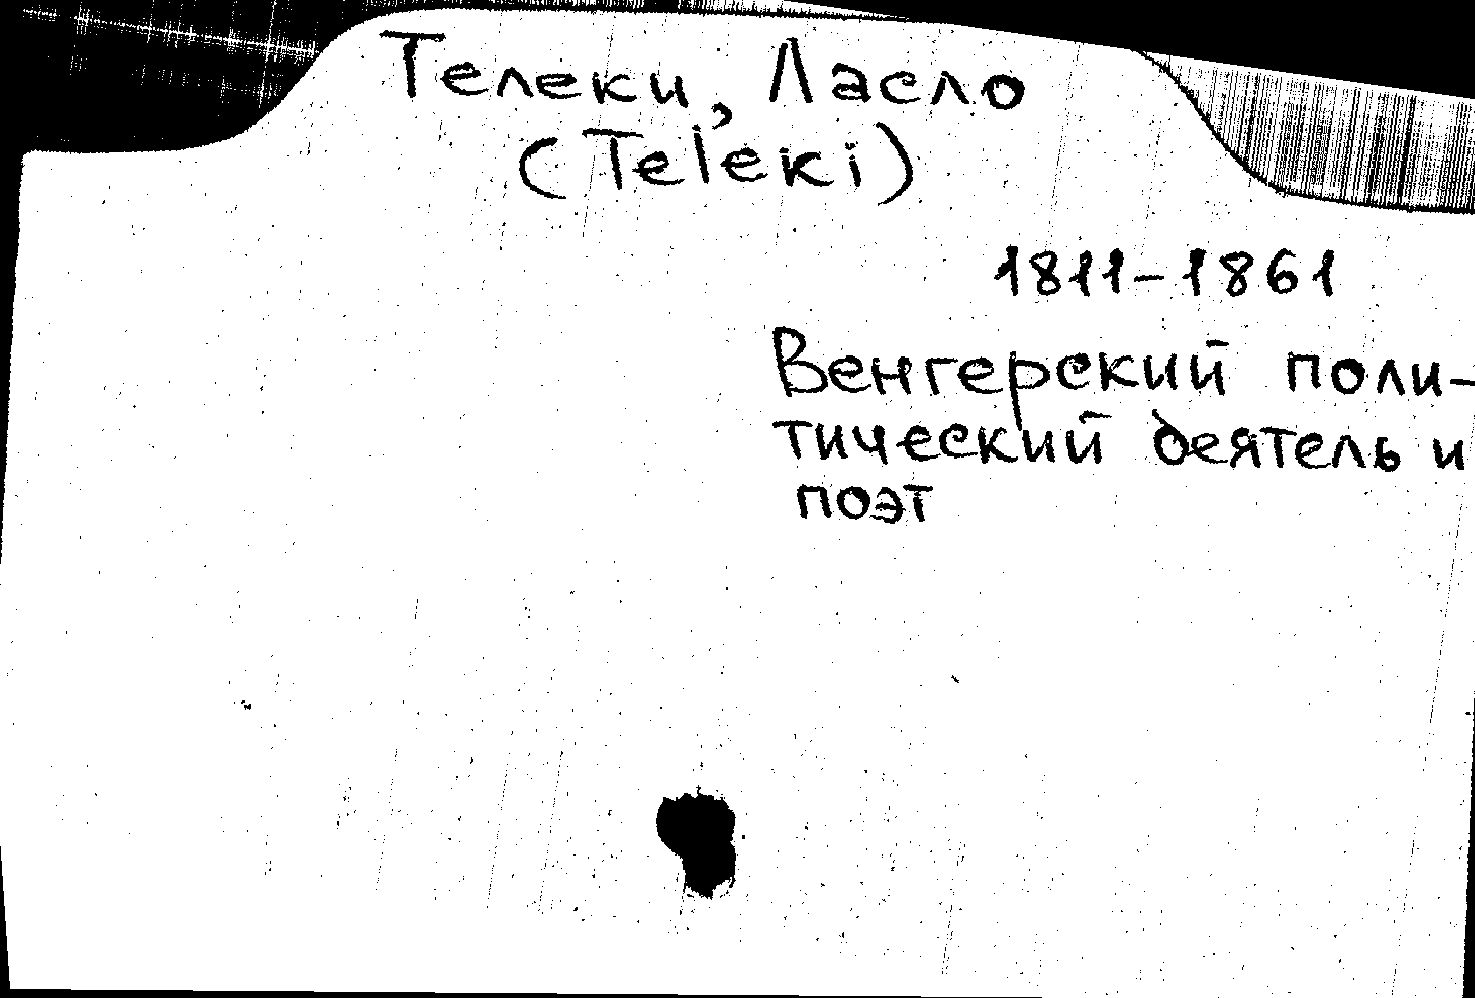 Телеки, Ласло
(Teleki)
1811-1861
Венгерский поли-
тический деятель и
поэт